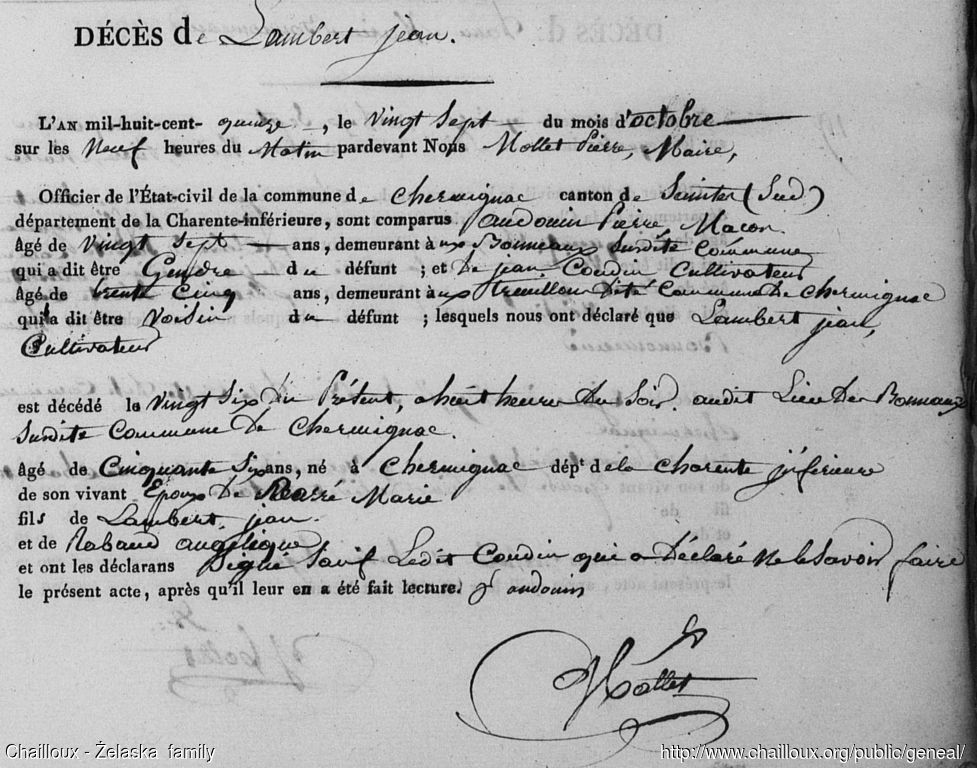 DÉCÈS de Lambert jean.
L'AN mil-huit-cent- quinze, le vingt Sept du mois d'octobre
sur les Neuf heures du Matin pardevant Nous Mollet Pierre, Maire,
Officier de l'État-civil de la commune de Chermignac canton de Saintes (Sud)
département de la Charente-inférieure, sont comparus audouin Pierre, Macon
âgé de vingt sept ans, demeurant à ux Bonneaux Surdite Commune
qui a dit être Gendre du défunt ; et De jean Coudin Cultivateur
âgé de trente Cinq ans, demeurant à ux treuillon Dite Commune De Chermignac
qui a dit être voisin du défunt ; lesquels nous ont déclaré que Lambert jean,
Cultivateur
est décédé le vingt Six du Présent, a huit heure Du Soir audit Lieu Des Bonneaux
Surdite Commune De Chermignac.
âgé de Cinquante Six ans, né à Chermignac dépt de la Charente jnferieure
de son vivant Epoux De Marie
fils de Lambert jean.
et de Rabaud angelique
et ont les déclarans Signé Sauf Ledit Coudin qui a Déclaré Ne le Savoir faire
le présent acte, après qu'il leur en a été fait lecture. audouin
Mollet
Chailloux - Żelaska family
http://www.chailloux.org/public/geneal/